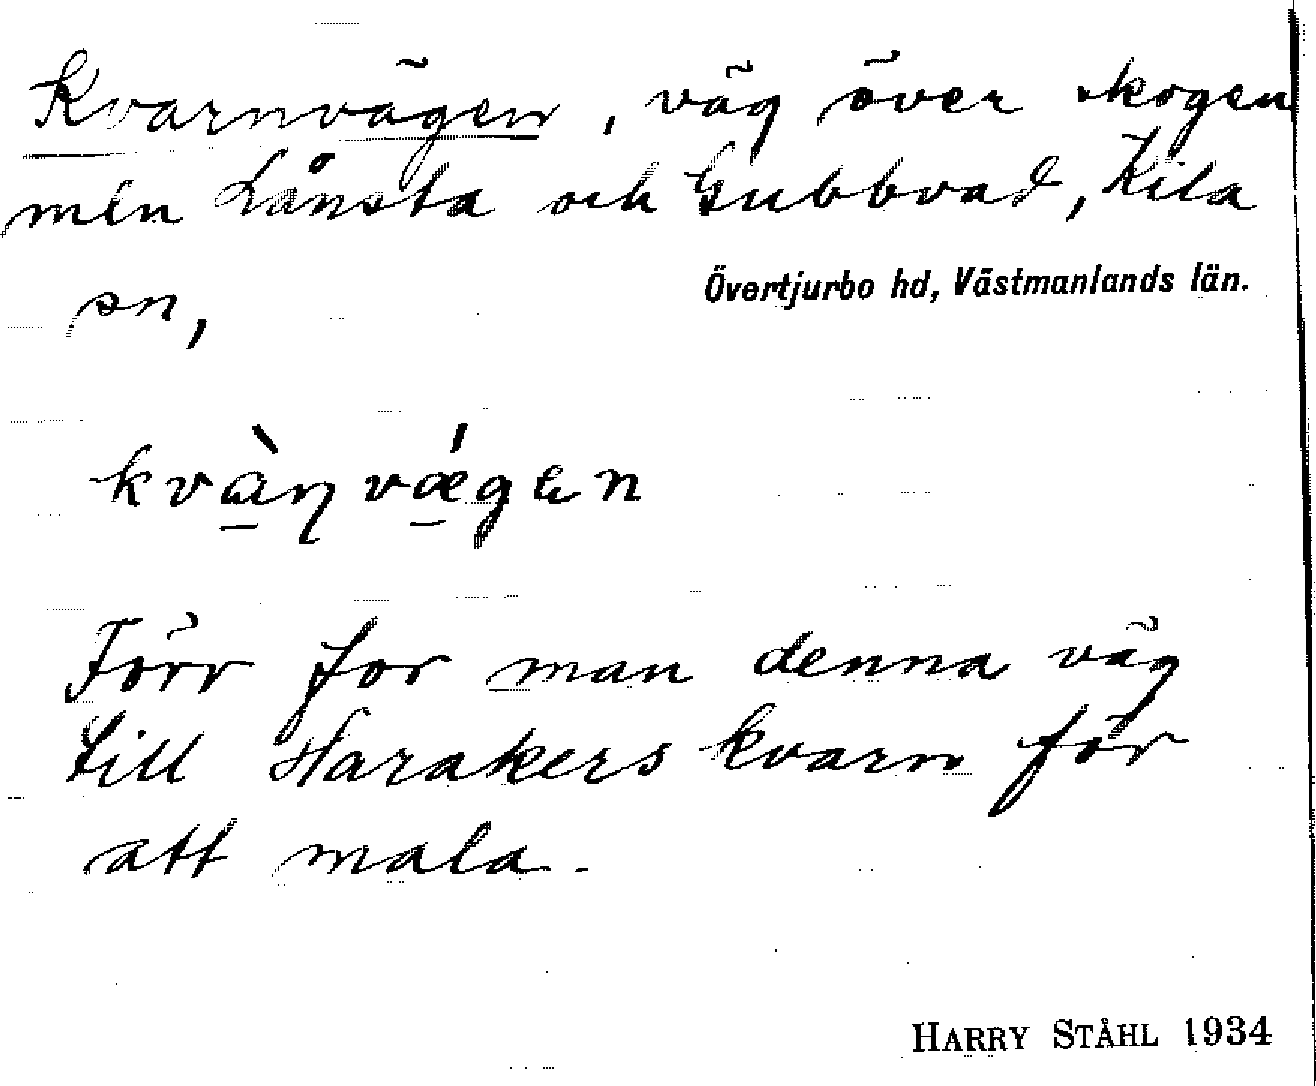 Kvarnvägen, väg över skogen
mln Lånsta och Gubbvad, Kila
sn,
Övertjurbo hd, Västmanlands län.
kvàņvǽgen
Förr for man denna väg
till Harakers kvarn för
att mala.
HARRY STÅHL 1934